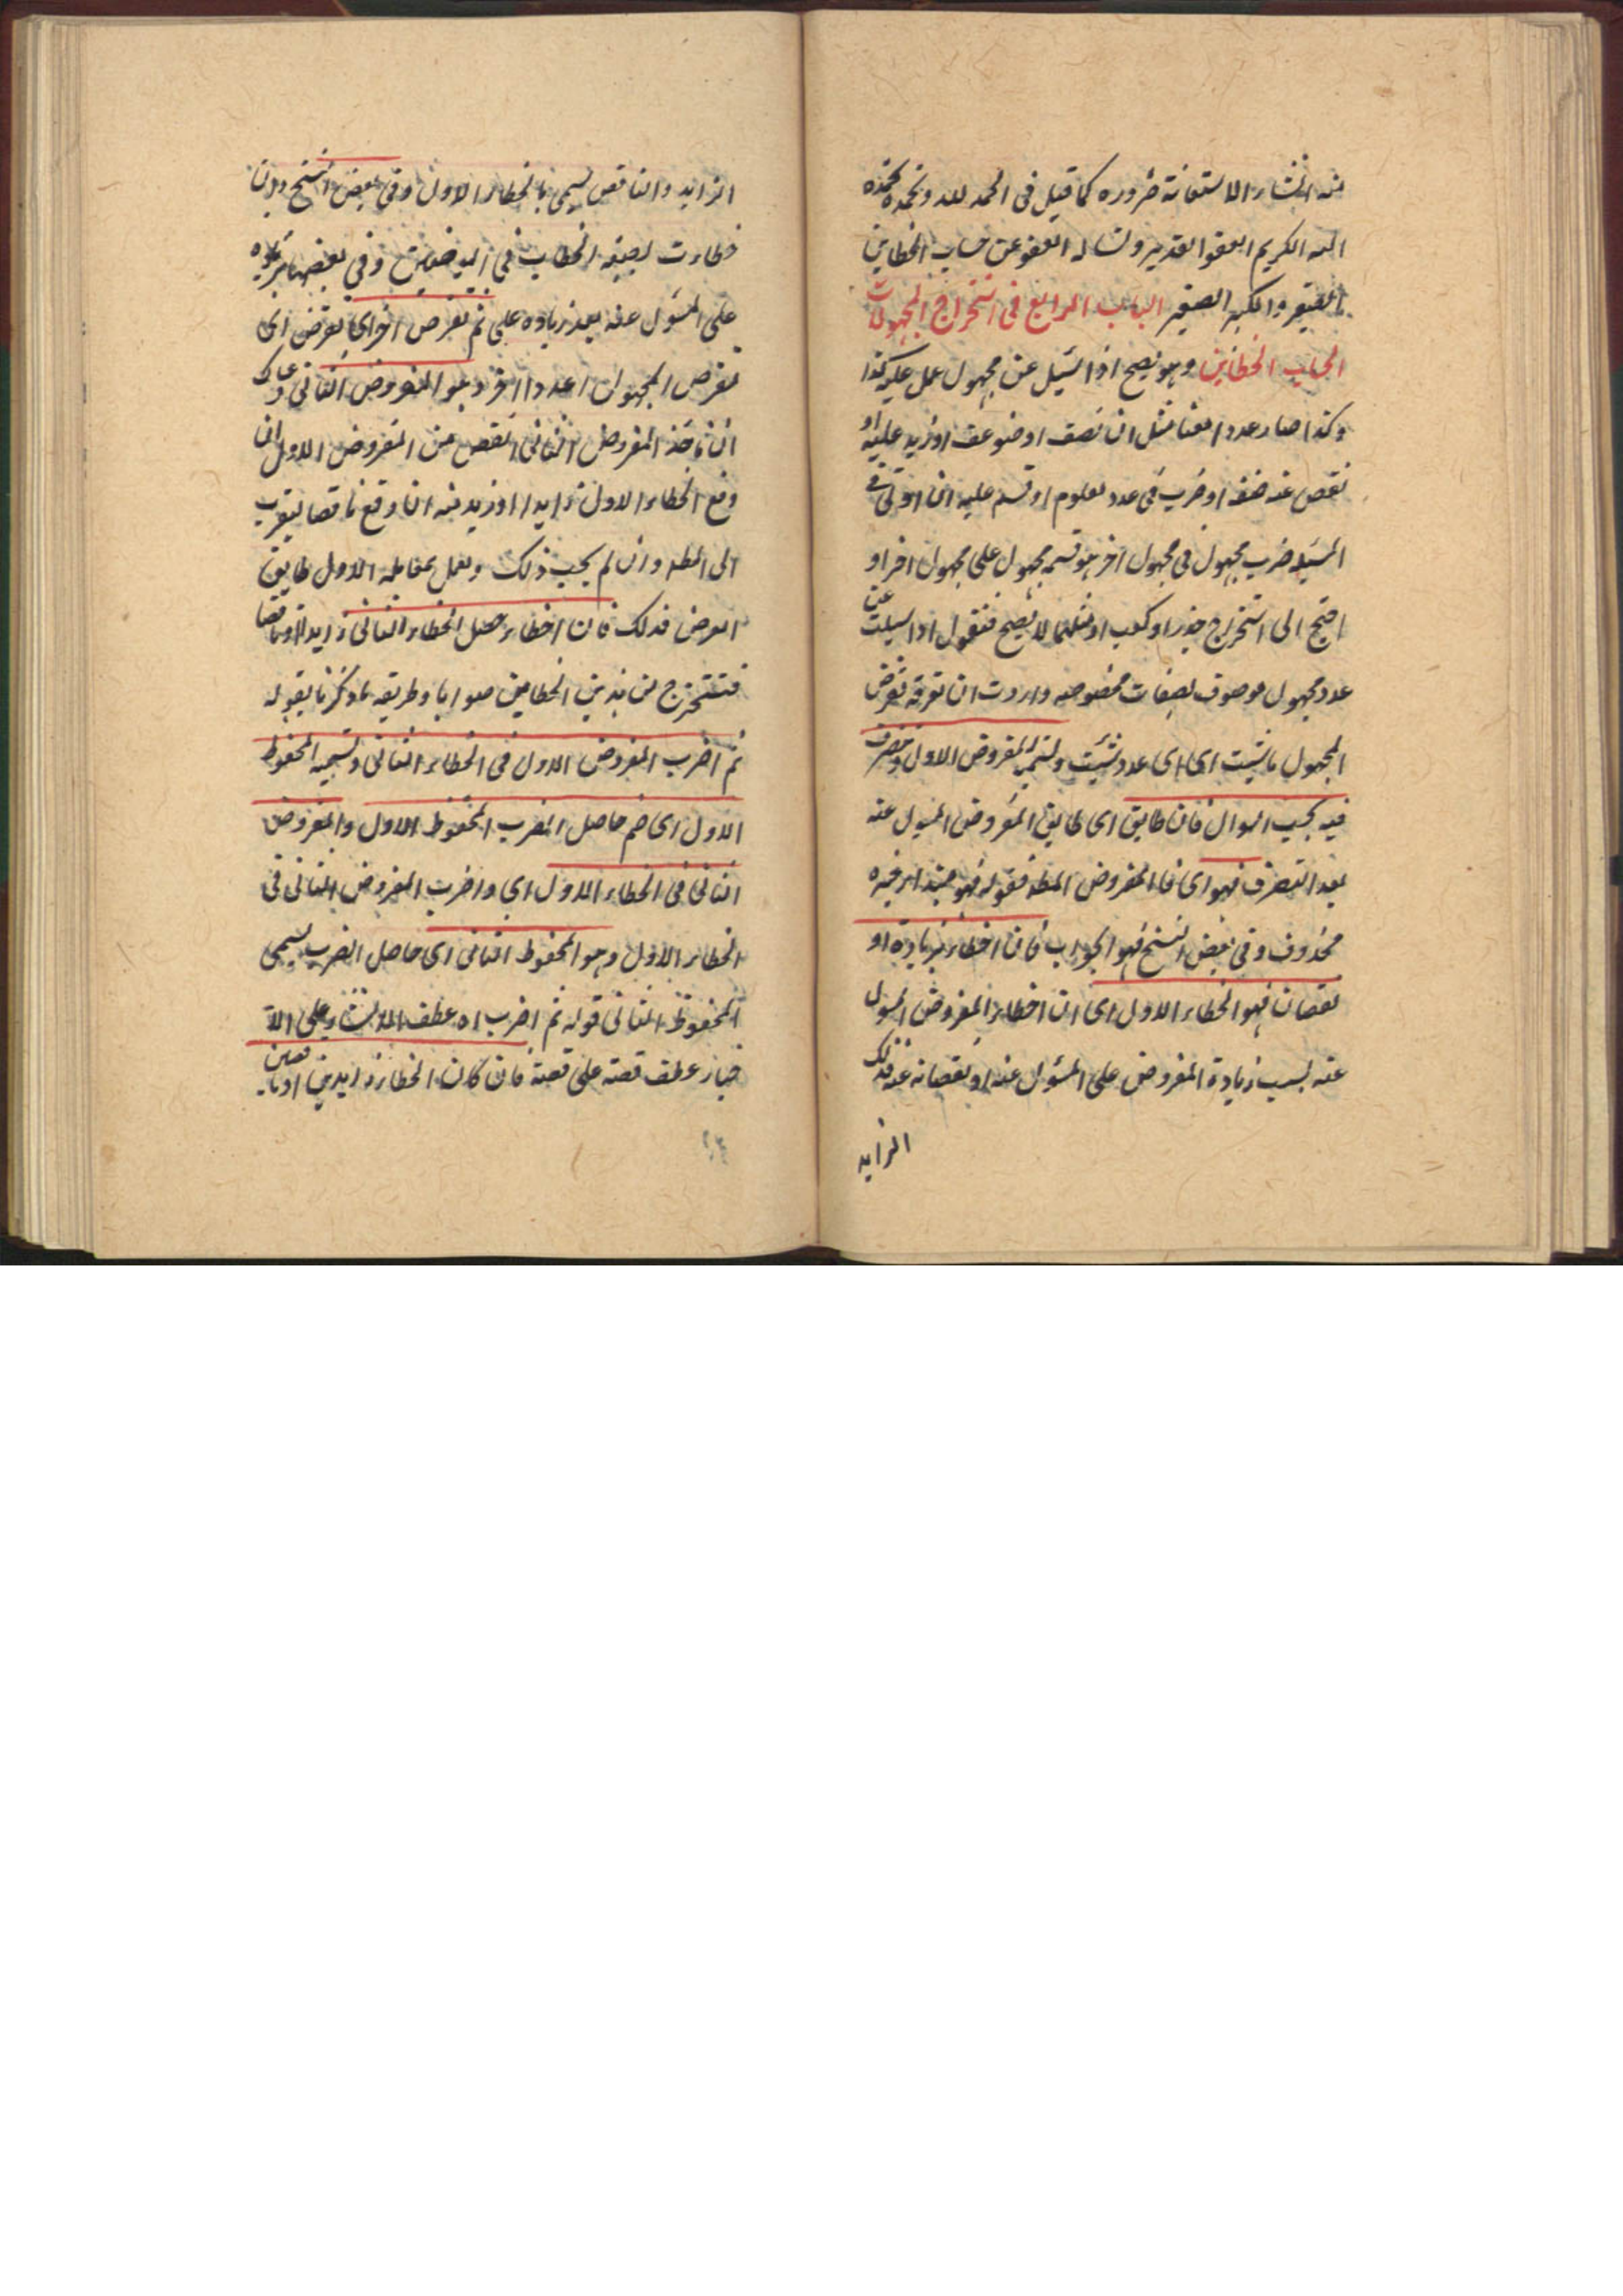 منه انشاء الاستعانة ضروره كما قيل فى الحمد لله ونحمده نحمده
الله الكريم العفو القدير ونساله العفو عن حساب الخطاين
الكبير الصغير الباب الرابع فى استخراج المجهولات
الحساب الخطاين وهو يصح اذا سئيل عن مجهول عمل عليه كذا
وكذا صار عددا معنا مثل ان نصف او ضوعف او زيد عليه او
نقص عنه ضعف او ضرب فى عدد معلوم او قسم عليه
المسئله ضرب مجهول فى مجهول اخر هو قسمه مجهول على مجهول اخر او
احتيج الى استخراج جذر او كعب او مثلهما لا يصح فنقول اذا سيلت عن
عدد مجهول موصوف بصفات مخصوصه واردت ان تعرفه تفرض
المجهول ما شيت اى اى عدد شئيت وتسميه المفروض الاول وتتصرف
فيه بحسب السوال فان طابق اى طابق المفروض المسيول عنه
بعد التصرف فهو اى فالمفروض المط فقوله فهو مبتدا خبره
محذوف وفى بعض النسخ فهو الجواب فان اخطاء بزيادة او
نقصان فهو الخطاء الاول اى ان اخطاء المفروض المسول
عنه بسبب زيادة المفروض على المسؤل عنه او نقصانه عنه فذلك
الزايد
الزايد والناقص يسمى بالخطاء الاول وفى بعض النسخ وان
خطاءت بصيغه الخطاب فى وفى بعضها بزياده
على المسؤل عنه بعد زياده على ثم تفرض اخر اى تفرض اى
تفرض المجهول عددا اخر وهو المفروض الثانى و
ان تاخذ المفروض الثانى انقص من المفروض الاول ان
وقع الخطاء الاول زايدا او ازيد منه ان وقع ناقصا ليقرب
الى المط وان لم يجب ذلك وتعمل بمقابله الاول طابق
الفرض فذلك فان اخطاء حصل الخطاء الثانى زايدا او ناقصا
فتستخرج من هذين الخطاين صوابا وطريقه ما ذكرنا بقوله
ثم اضرب المفروض الاول فى الخطاء الثانى وتسميه المحفوظ
الاول اى ضم حاصل الضرب المحفوظ الاول والمفروض
الثانى فى الخطاء الاول اى واضرب المفروض الثانى فى
الخطاء الاول وهو المحفوظ الثانى اى حاصل الضرب يسمى
المحفوظ الثانى قوله ثم اضرب اه عطف الانشاء على الا
خبار عطف قصة على قصة فان كان الخطاء زايدين او ناقصين